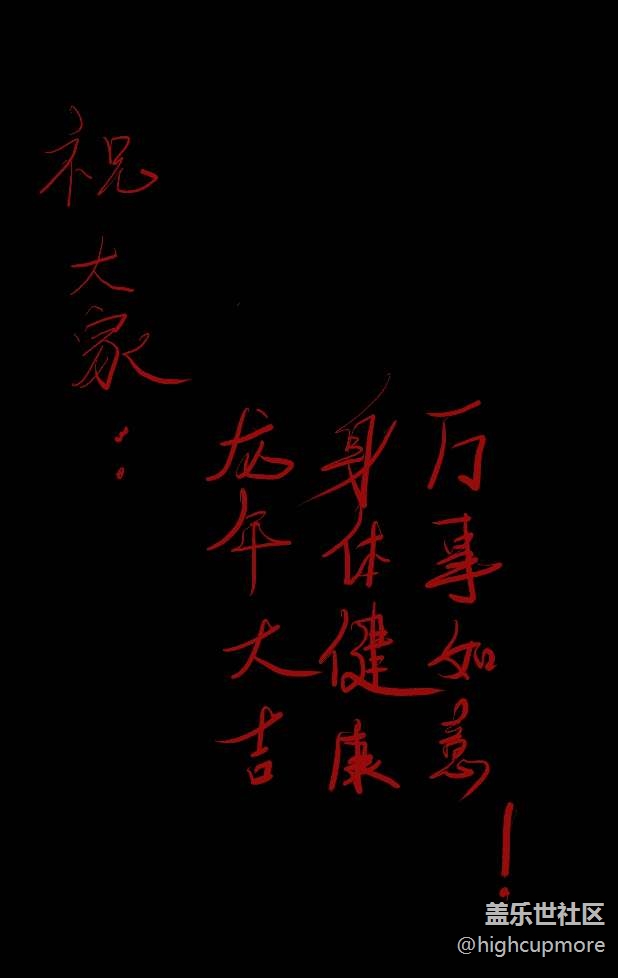 祝大家：
龙年大吉
身体健康
万事如意！
盖乐世社区
@highcupmore